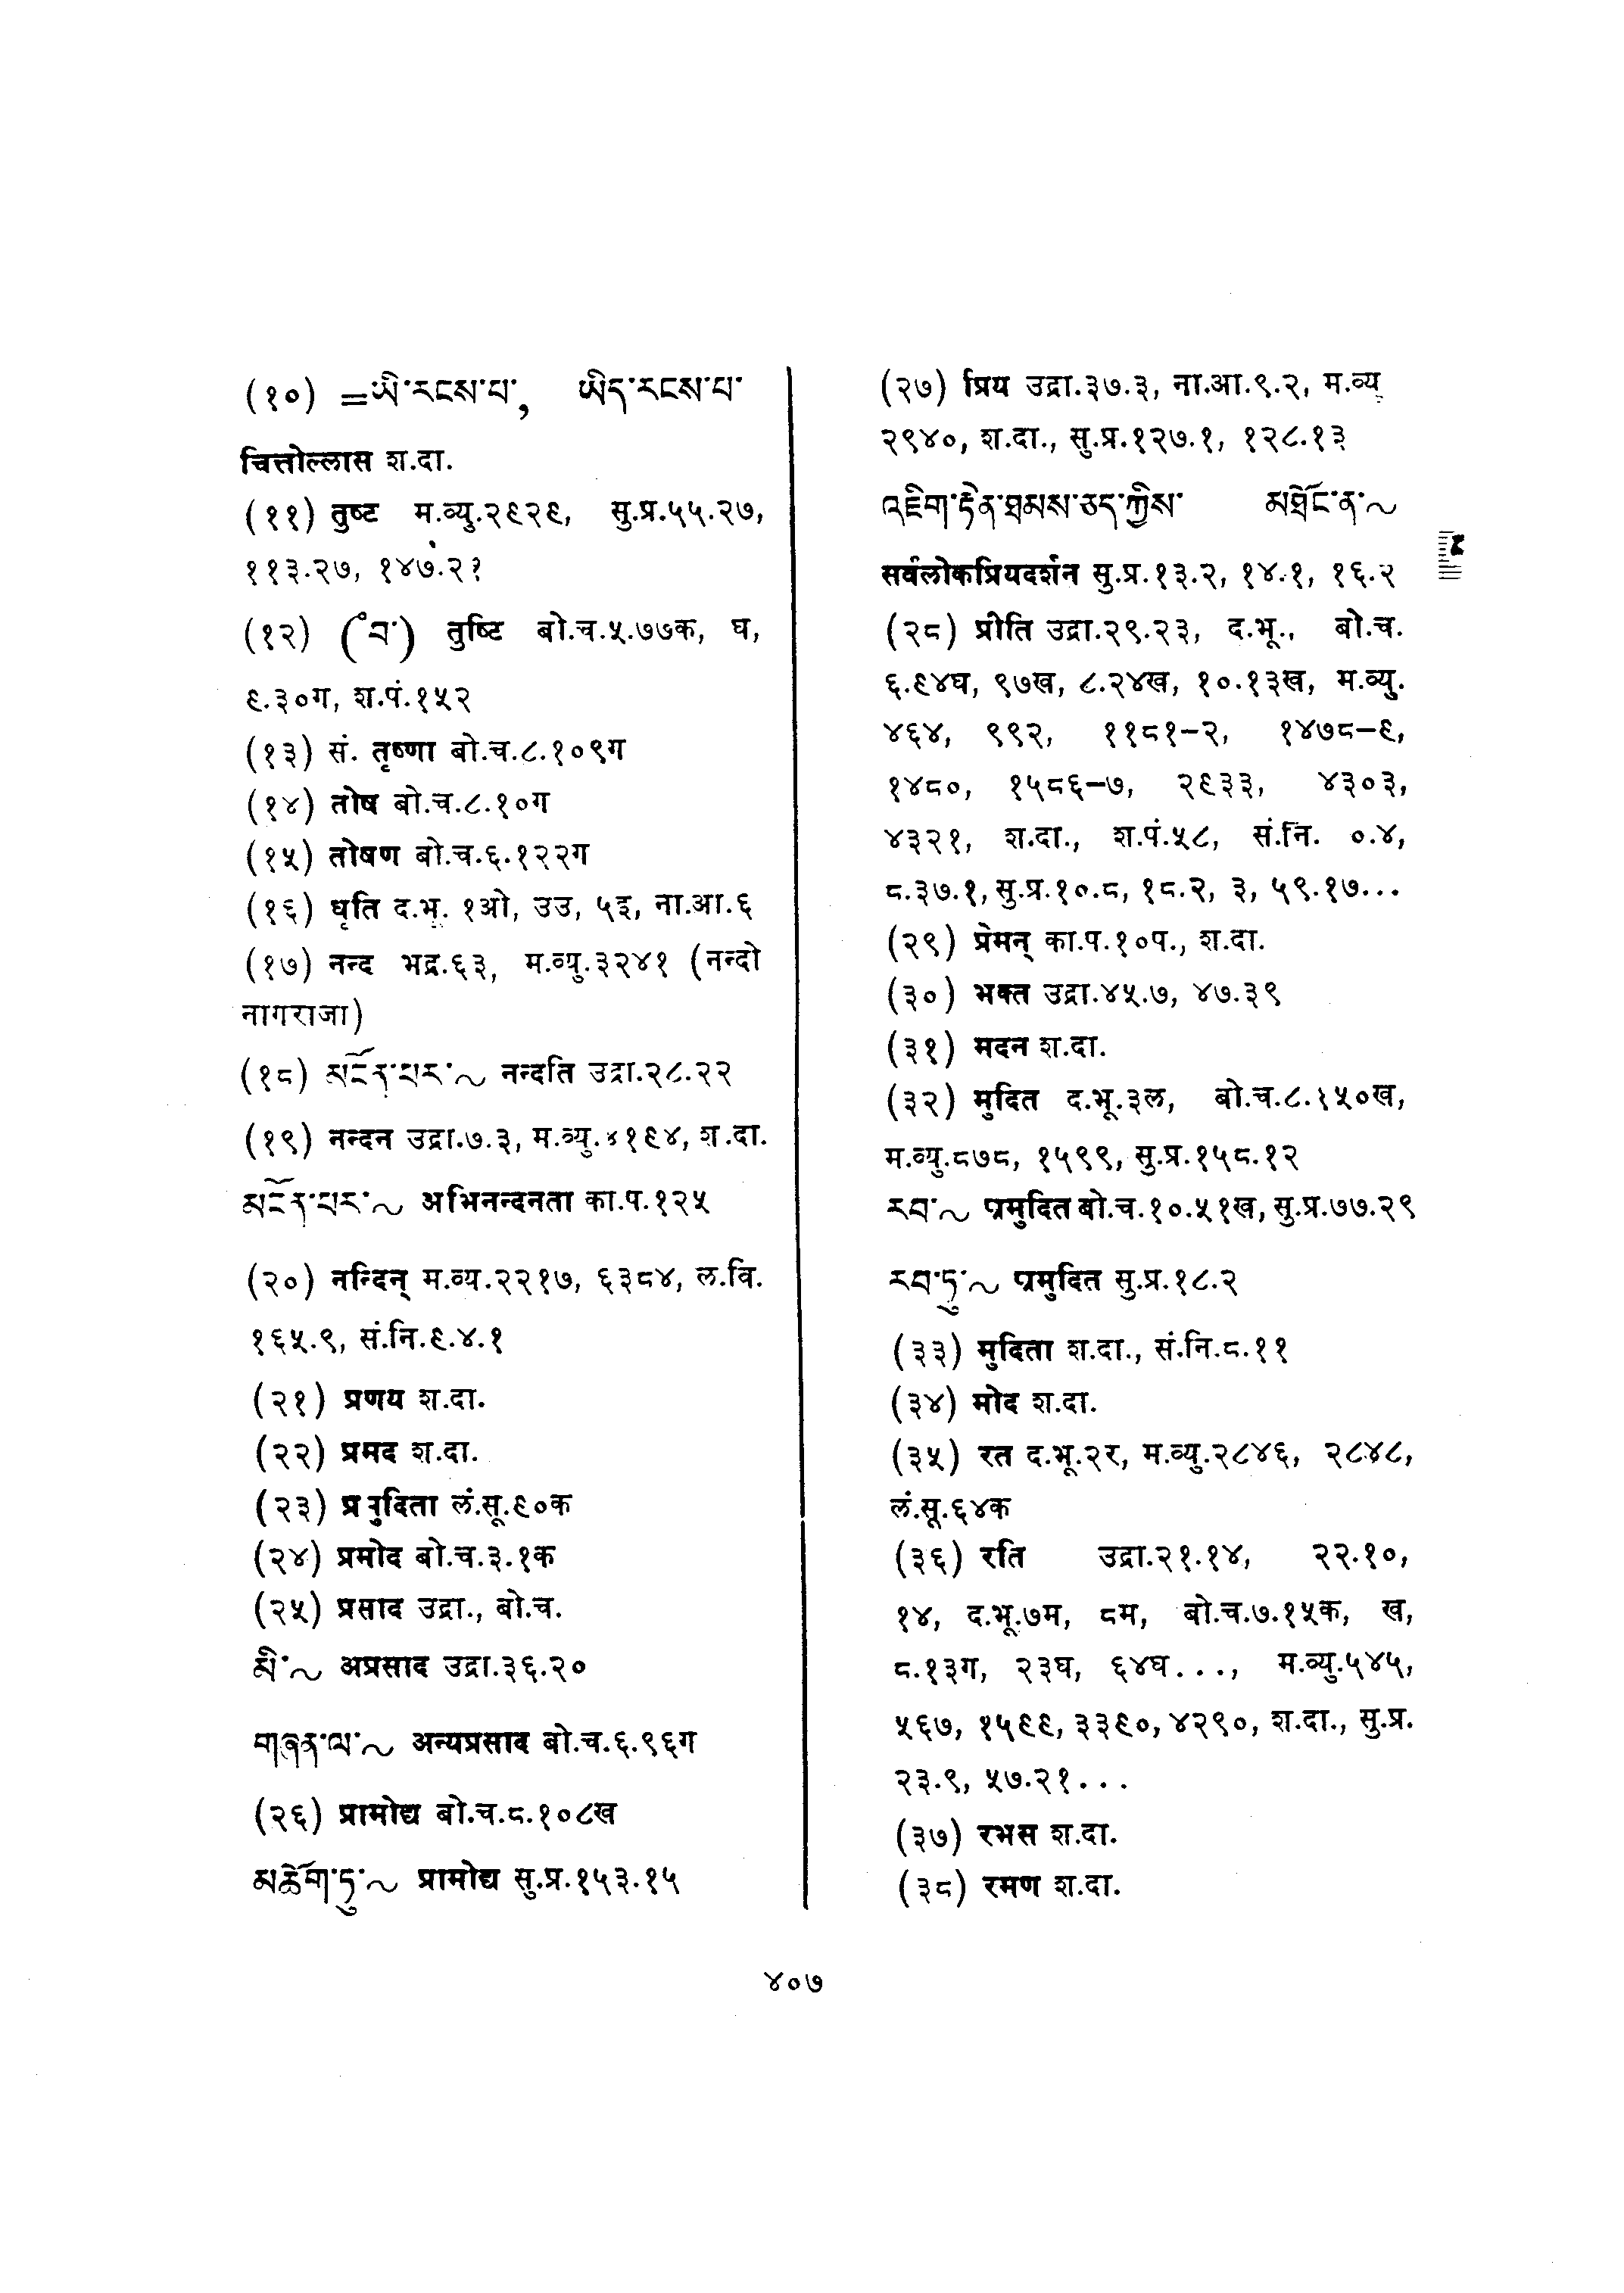 (१०) =ཡི་རངས་པ་, ཡིད་རངས་པ་
चित्तोल्लास श.दा.
(११) तुष्ट म.व्यु.२९२९, सु.प्र.५५.२७,
११३.२७, १४७.२१
(१२) (ོབ་) तुष्टि बो.च.५.७७क, घ,
९.३०ग, श.पं.१५२
(१३) सं. तृष्णा बो.च.८.१०९ग
(१४) तोष बो.च.८.१०ग
(१५) तोषण बो.च.६.१२२ग
(१६) धृति द.भू. १ओ, उउ, ५इ, ना.आ.६
(१७) नन्द भद्र.६३, म.व्यु.३२४१ (नन्दो
नागराजा)
(१८) མངོན་པར་~ नन्दति उद्रा.२८.२२
(१९) नन्दन उद्रा.७.३, म.व्यु.४१९४, श.दा.
མངོན་པར་~ अभिनन्दनता का.प.१२५
(२०) नन्दिन् म.व्य.२२१७, ६३८४, ल.वि.
१६५.९, सं.नि.९.४.१
(२१) प्रणय श.दा.
(२२) प्रमद श.दा.
(२३) प्रमुदिता लं.सू.९०क
(२४) प्रमोद बो.च.३.१क
(२५) प्रसाद उद्रा., बो.च.
མི་~ अप्रसाद उद्रा.३६.२०
གཞན་ལ་~ अन्यप्रसाद बो.च.६.९६ग
(२६) प्रामोद्य बो.च.८.१०८ख
མཆོག་ཏུ་~ प्रामोद्य सु.प्र.१५३.१५
(२७) प्रिय उद्रा.३७.३, ना.आ.९.२, म.व्यु
२९४०, श.दा., सु.प्र.१२७.१, १२८.१३
འཇིག་རྟེན་ཐམས་ཅད་ཀྱིས་ མཐོང་ན་~
सर्वलोकप्रियदर्शन सु.प्र.१३.२, १४.१, १६.२
(२८) प्रीति उद्रा.२९.२३, द.भू., बो.च.
६.९४घ, ९७ख, ८.२४ख, १०.१३ख, म.व्यु.
४६४, ९९२, ११८१-२, १४७८-९,
१४८०, १५८६-७, २९३३, ४३०३,
४३२१, श.दा., श.पं.५८, सं.नि. ०.४,
८.३७.१, सु.प्र.१०.८, १८.२, ३, ५९.१७...
(२९) प्रेमन् का.प.१०प., श.दा.
(३०) भक्त उद्रा.४५.७, ४७.३९
(३१) मदन श.दा.
(३२) मुदित द.भू.३ल, बो.च.८.१५०ख,
म.व्यु.८७८, १५९९, सु.प्र.१५८.१२
རབ་~ प्रमुदित बो.च.१०.५१ख, सु.प्र.७७.२९
རབ་ཏུ་~ प्रमुदित सु.प्र.१८.२
(३३) मुदिता श.दा., सं.नि.८.११
(३४) मोद श.दा.
(३५) रत द.भू.२र, म.व्यु.२८४६, २८४८,
लं.सू.६४क
(३६) रति उद्रा.२१.१४, २२.१०,
१४, द.भू.७म, ८म, बो.च.७.१५क, ख,
८.१३ग, २३घ, ६४घ..., म.व्यु.५४५,
५६७, १५९९, ३३९०, ४२९०, श.दा., सु.प्र.
२३.९, ५७.२१...
(३७) रभस श.दा.
(३८) रमण श.दा.
४०७